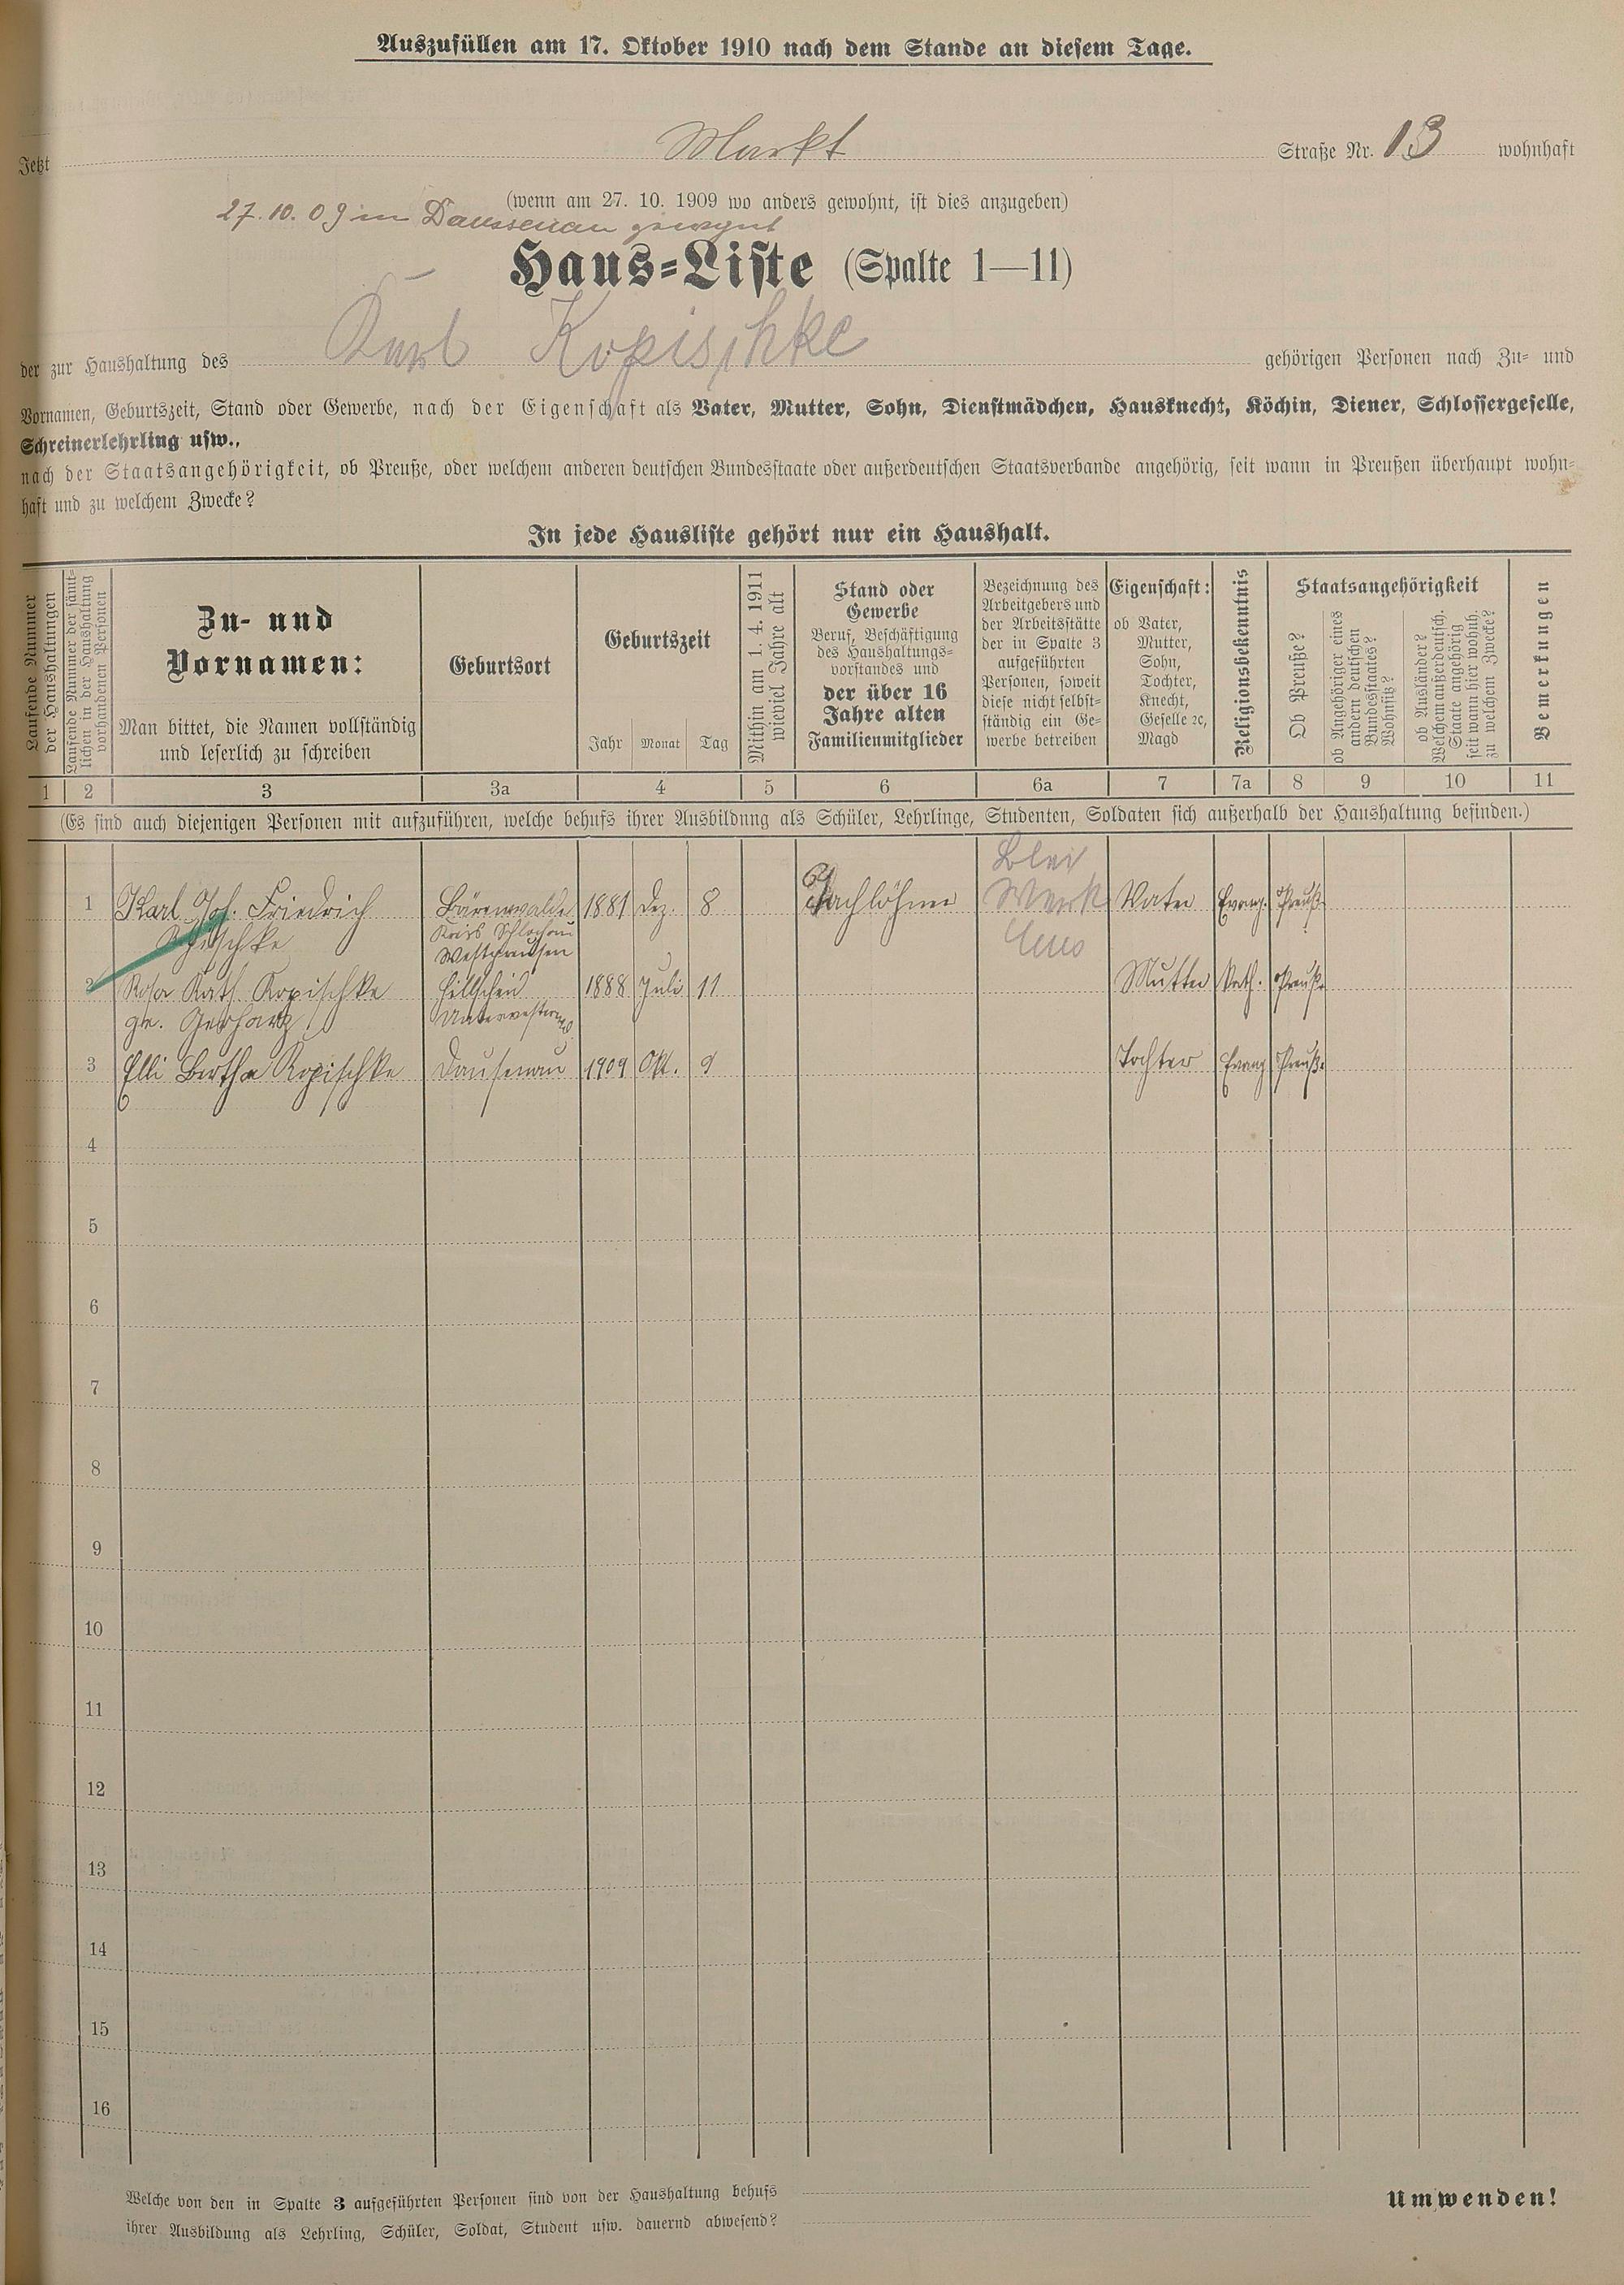 Auszufüllen am 17. Oktober 1910 nach dem Stande an diesem Tage.
Jetzt Markt Straße Nr. 13 wohnhaft
(wenn am 27. 10. 1909 wo anders gewohnt, ist dies anzugeben)
27. 10. 09 in Daussenau gewohnt
Haus=Liste (Spalte 1—11)
der zur Haushaltung des Karl Kopischke gehörigen Personen nach Zu= und
Vornamen, Geburtszeit, Stand oder Gewerbe, nach der Eigenschaft als Vater, Mutter, Sohn, Dienstmädchen, Hausknecht, Köchin, Diener, Schlossergeselle,
Schreinerlehrling usw.,
nach der Staatsangehörigkeit, ob Preuße, oder welchem anderen deutschen Bundesstaate oder außerdeutschen Staatsverbande angehörig, seit wann in Preußen überhaupt wohn=
haft und zu welchem Zwecke?
In jede Hausliste gehört nur ein Haushalt.
Laufende Nummer
der Haushaltungen
Laufende Nummer der sämt=
lichen in der Haushaltung
vorhandenen Personen
Zu- und
Vornamen:
Man bittet, die Namen vollständig
und leserlich zu schreiben
Geburtsort
Geburtszeit
Jahr Monat Tag
Mithin am 1. 4. 1911
wieviel Jahre alt
Stand oder
Gewerbe
Beruf, Beschäftigung
des Haushaltungs=
vorstandes und
der über 16
Jahre alten
Familienmitglieder
Bezeichnung des
Arbeitgebers und
der Arbeitsstätte
der in Spalte 3
aufgeführten
Personen, soweit
diese nicht selbst=
ständig ein Ge=
werbe betreiben
Eigenschaft:
ob Vater,
Mutter,
Sohn,
Tochter,
Knecht,
Geselle ꝛc,
Magd
Religionsbekenntnis
Staatsangehörigkeit
Ob Preuße?
ob Angehöriger eines
andern deutschen
Bundesstaates?
Wohnsitz?
ob Ausländer?
Welchem außerdeutsch.
Staate angehörig
seit wann hier wohnh.
zu welchem Zwecke?
Bemerkungen
1 2 3 3a 4 5 6 6a 7 7a 8 9 10 11
(Es sind auch diejenigen Personen mit aufzuführen, welche behufs ihrer Ausbildung als Schüler, Lehrlinge, Studenten, Soldaten sich außerhalb der Haushaltung befinden.)
1 Karl Joh. Friedrich Bärenwalde 1881 Dez. 8 Tachlöhner Blei Werk Ems Vater Evang. Preuß.
Kopischke Kreis Schlochau
Westpreussen
2 Rosa Kath. Kopischke Hillscheid 1888 Juli 11 Mutter Kath. Preuß.
ge. Gerharz Unterwesterwald
3 Elli Bertha Kopischke Dausenau 1909 Okt. 9 Tochter Evang Preuß.
4
5
6
7
8
9
10
11
12
13
14
15
16
Welche von den in Spalte 3 aufgeführten Personen sind von der Haushaltung behufs
ihrer Ausbildung als Lehrling, Schüler, Soldat, Student usw. dauernd abwesend?
Umwenden!